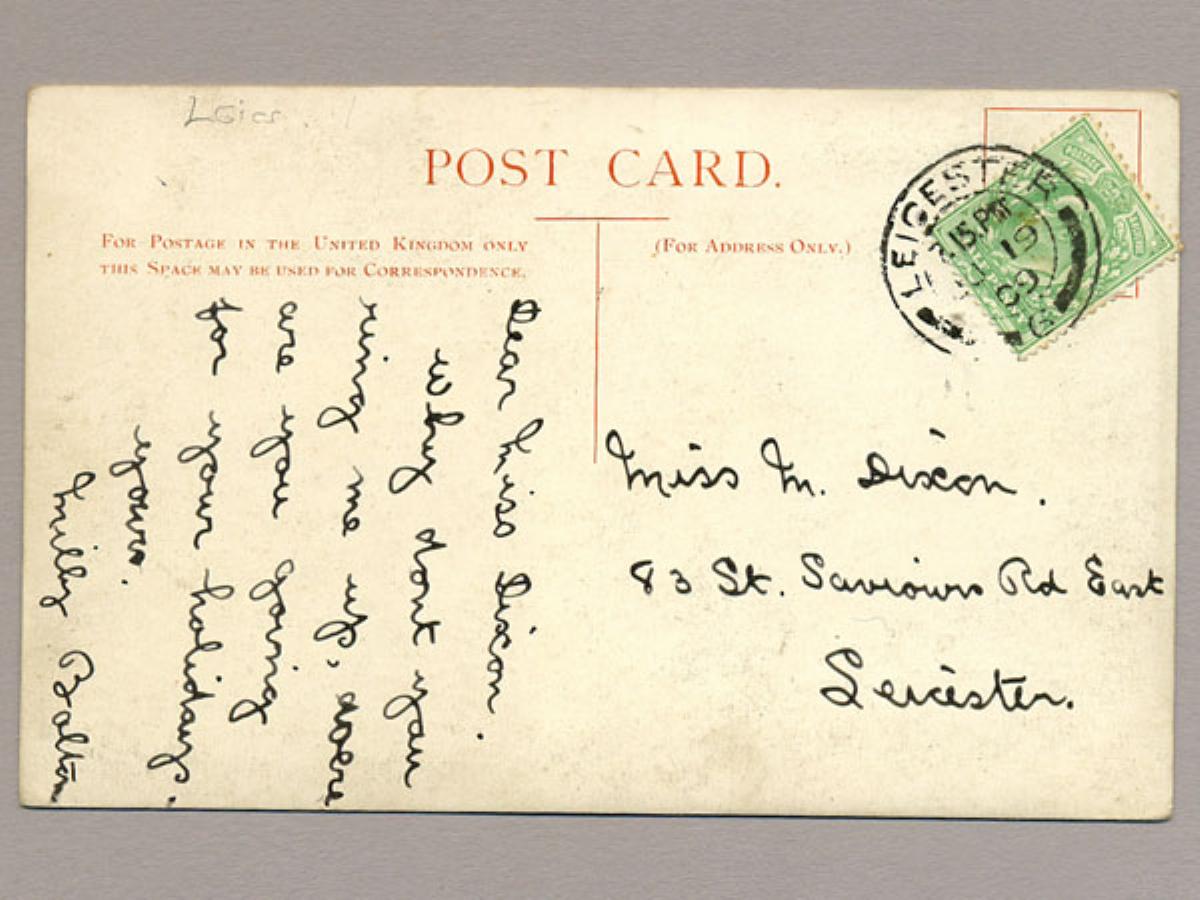 Leics.
POST CARD.
FOR POSTAGE IN THE UNITED KINGDOM ONLY
THIS SPACE MAY BE USED FOR CORRESPONDENCE.
(FOR ADDRESS ONLY.)
LEICESTER
15.PM
19
09
G
Dear Miss Dixon.
Why dont you
ring me up, where
are you going
for your holidays.
yours.
Milly Bolton
Miss M. Dixon.
83 St. Saviours Rd East
Leicester.